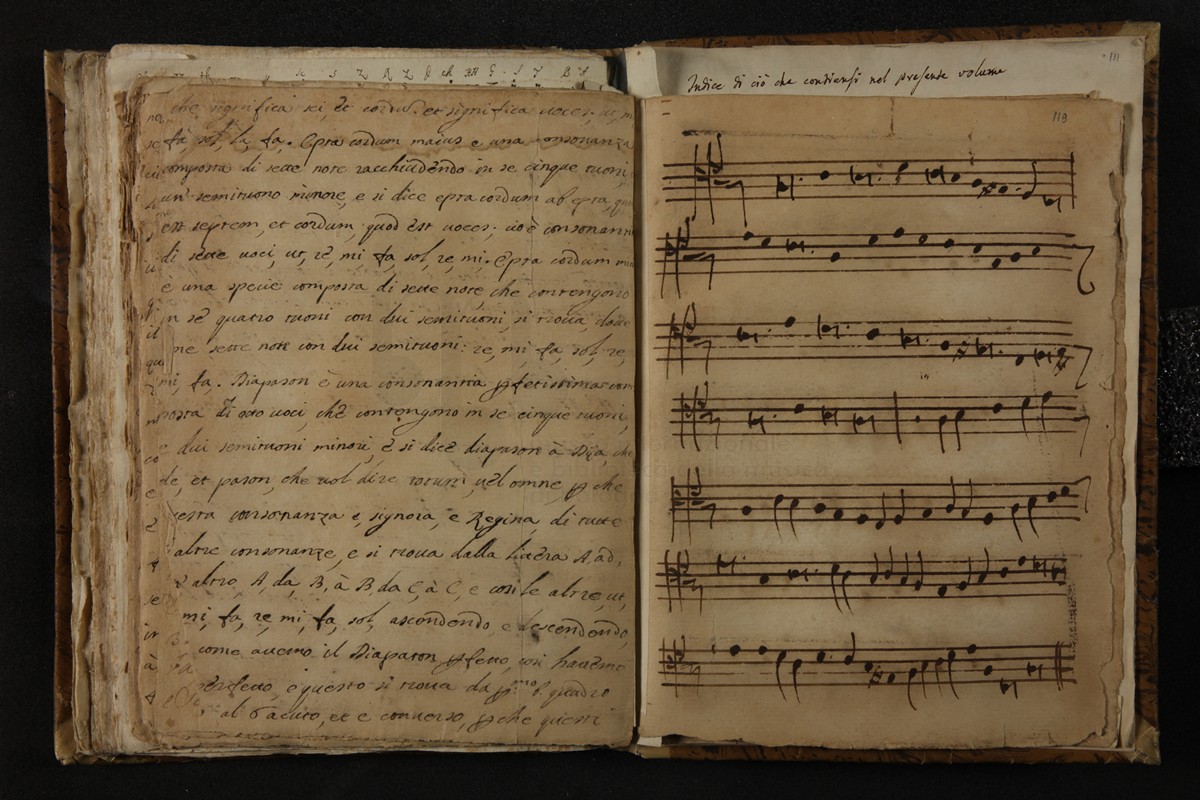 che significa sei, et cordu. et significa uoces: ut,
fa, sol, la, fa. Epta cordum maius è una consonanza
omposta di sette note racchiudendo in se cinque tuoni,
un semituono minore, e si dice epta cordum ab epta, qu
est septem, et cordum, quod est uoces; cioè consonanti
di sette uoci, ut, re, mi fa, sol, re, mi. Epta cordum mi
è una specie composta di sette note, che contengono
n sè quatro tuoni con dui semituoni, si troua doue
ne sette note con dui semituoni: re, mi fa, sol, re,
mi, fa. Diapason è una consonantia pfetissima com
posta di otto uoci, che contengono in se cinque tuoni,
e dui semituoni minori, e si dice diapason à Dia, che
de, et pason, che uol dire totum, uel omne, p che
esta consonanza e, signora, e Regina di tutte
altre consonanze, e si troua dalla littera A, ad,
altro, A, da, B, à B, da C, à C, e cosi le altre, ut,
mi, fa, re, mi, fa, sol, ascondendo e descendendo,
come auemo il Diapason pfetto, cosi hauemo
perfetto, e questo si troua da pmo b. quadro
al acuto, et e conuerso, p che questi
Indice di ciò che contiensi nel presente volume
111
113